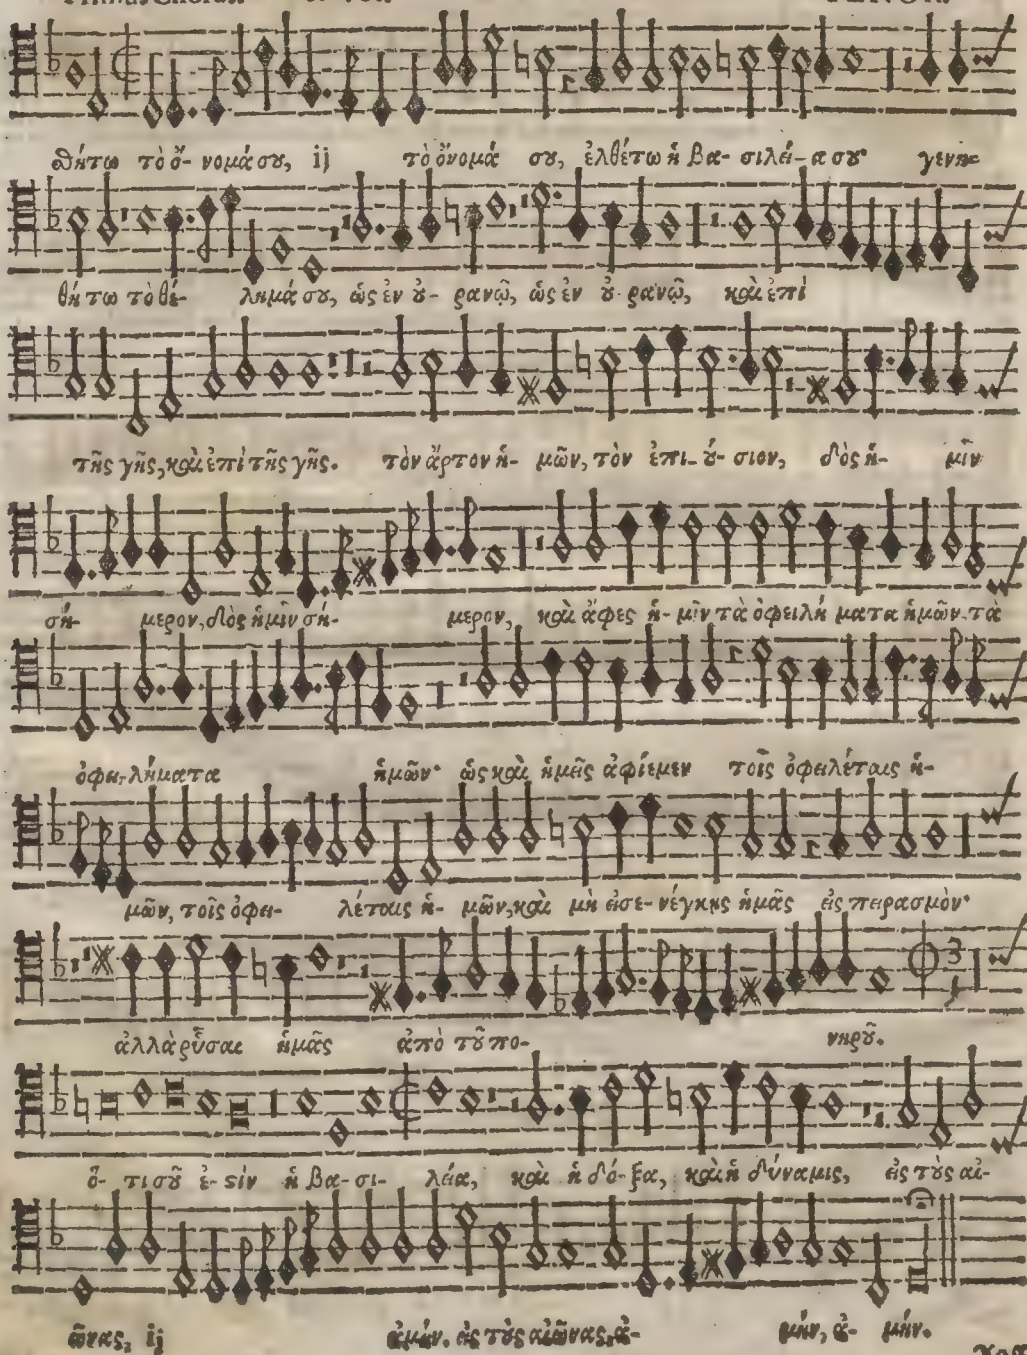 Primus Chorus. TENOR.
θήτω τὸ ὄ- νομά σȣ, ij τὸ ὄνομά σȣ, ἐλθέτω ἡ βα- σιλεί-α σȣ· γενη-
θή τω τὸ θέ- λημά σȣ, ὡς ἐν ȣ̓- ρανῷ, ὡς ἐν ȣ̓- ρανῷ, καὶ ἐπὶ
τῆς γῆς, καὶ ἐπὶ τῆς γῆς. τὸν ἄρτον ἡ- μῶν, τὸν ἐπι-ȣ́- σιον, δὸς ἡ- μῖν
σή- μερον, δὸς ἡμῖν σή- μερον, καὶ ἄφες ἡ- μῖν τὰ ὀφειλή ματα ἡμῶν. τὰ
ὀφει-λήματα ἡμῶν· ὡς καὶ ἡμεῖς ἀφίεμεν τοῖς ὀφειλέταις ἡ-
μῶν, τοῖς ὀφει- λέταις ἡ- μῶν, καὶ μὴ εἰσε- νέγκῃς ἡμᾶς εἰς πειρασμόν·
ἀλλὰ ῥῦσαι ἡμᾶς ἀπὸ τȣ͂ πο- νηρȣ͂.
ὅ- τι σȣ͂ ἐ- ϛὶν ἡ βα-σι- λεία, καὶ ἡ δό-ξα, καὶ ἡ δύναμις, εἰς τȣ̀ς αἰ-
ῶνας, ij ἀμήν. εἰς τȣ̀ς αἰῶνας, ἀ- μήν, ἀ- μήν.